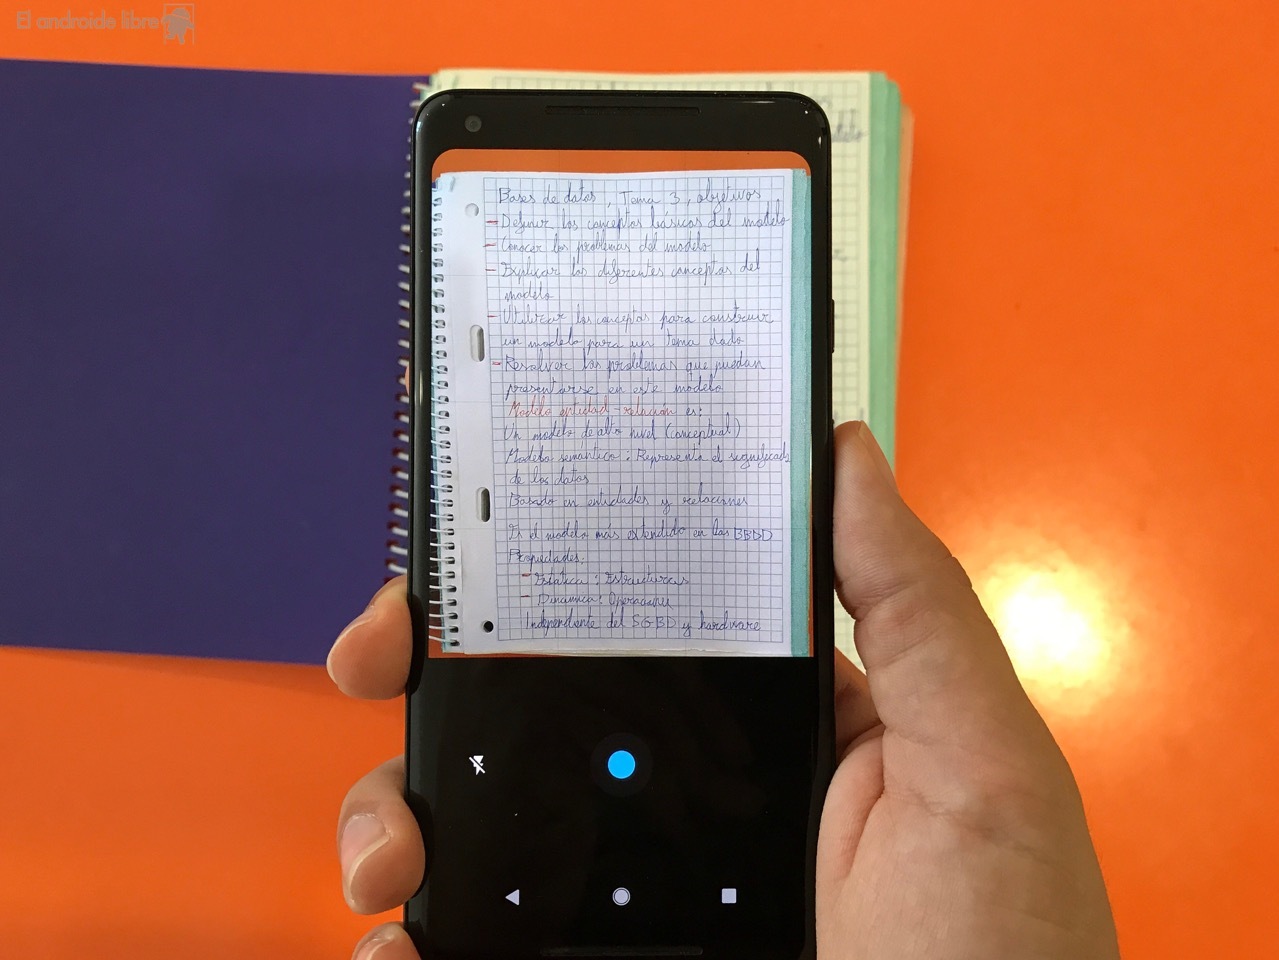 El androide libre
Bases de datos, Tema 3, objetivos
- Definir los conceptos básicos del modelo
- Conocer los problemas del modelo
- Explicar los diferentes conceptos del
modelo
- Utilizar los conceptos para construir
un modelo para un tema dado
- Resolver los problemas que puedan
presentarse en este modelo
Modelo entidad-relación es:
Un modelo de alto nivel (conceptual)
Modelo semántico: Representa el significado
de los datos
Basado en entidades y relaciones
Es el modelo más extendido en las BBDD
Propiedades:
- Estática: Estructuras
- Dinámica: Operaciones
Independiente del SGBD y hardware